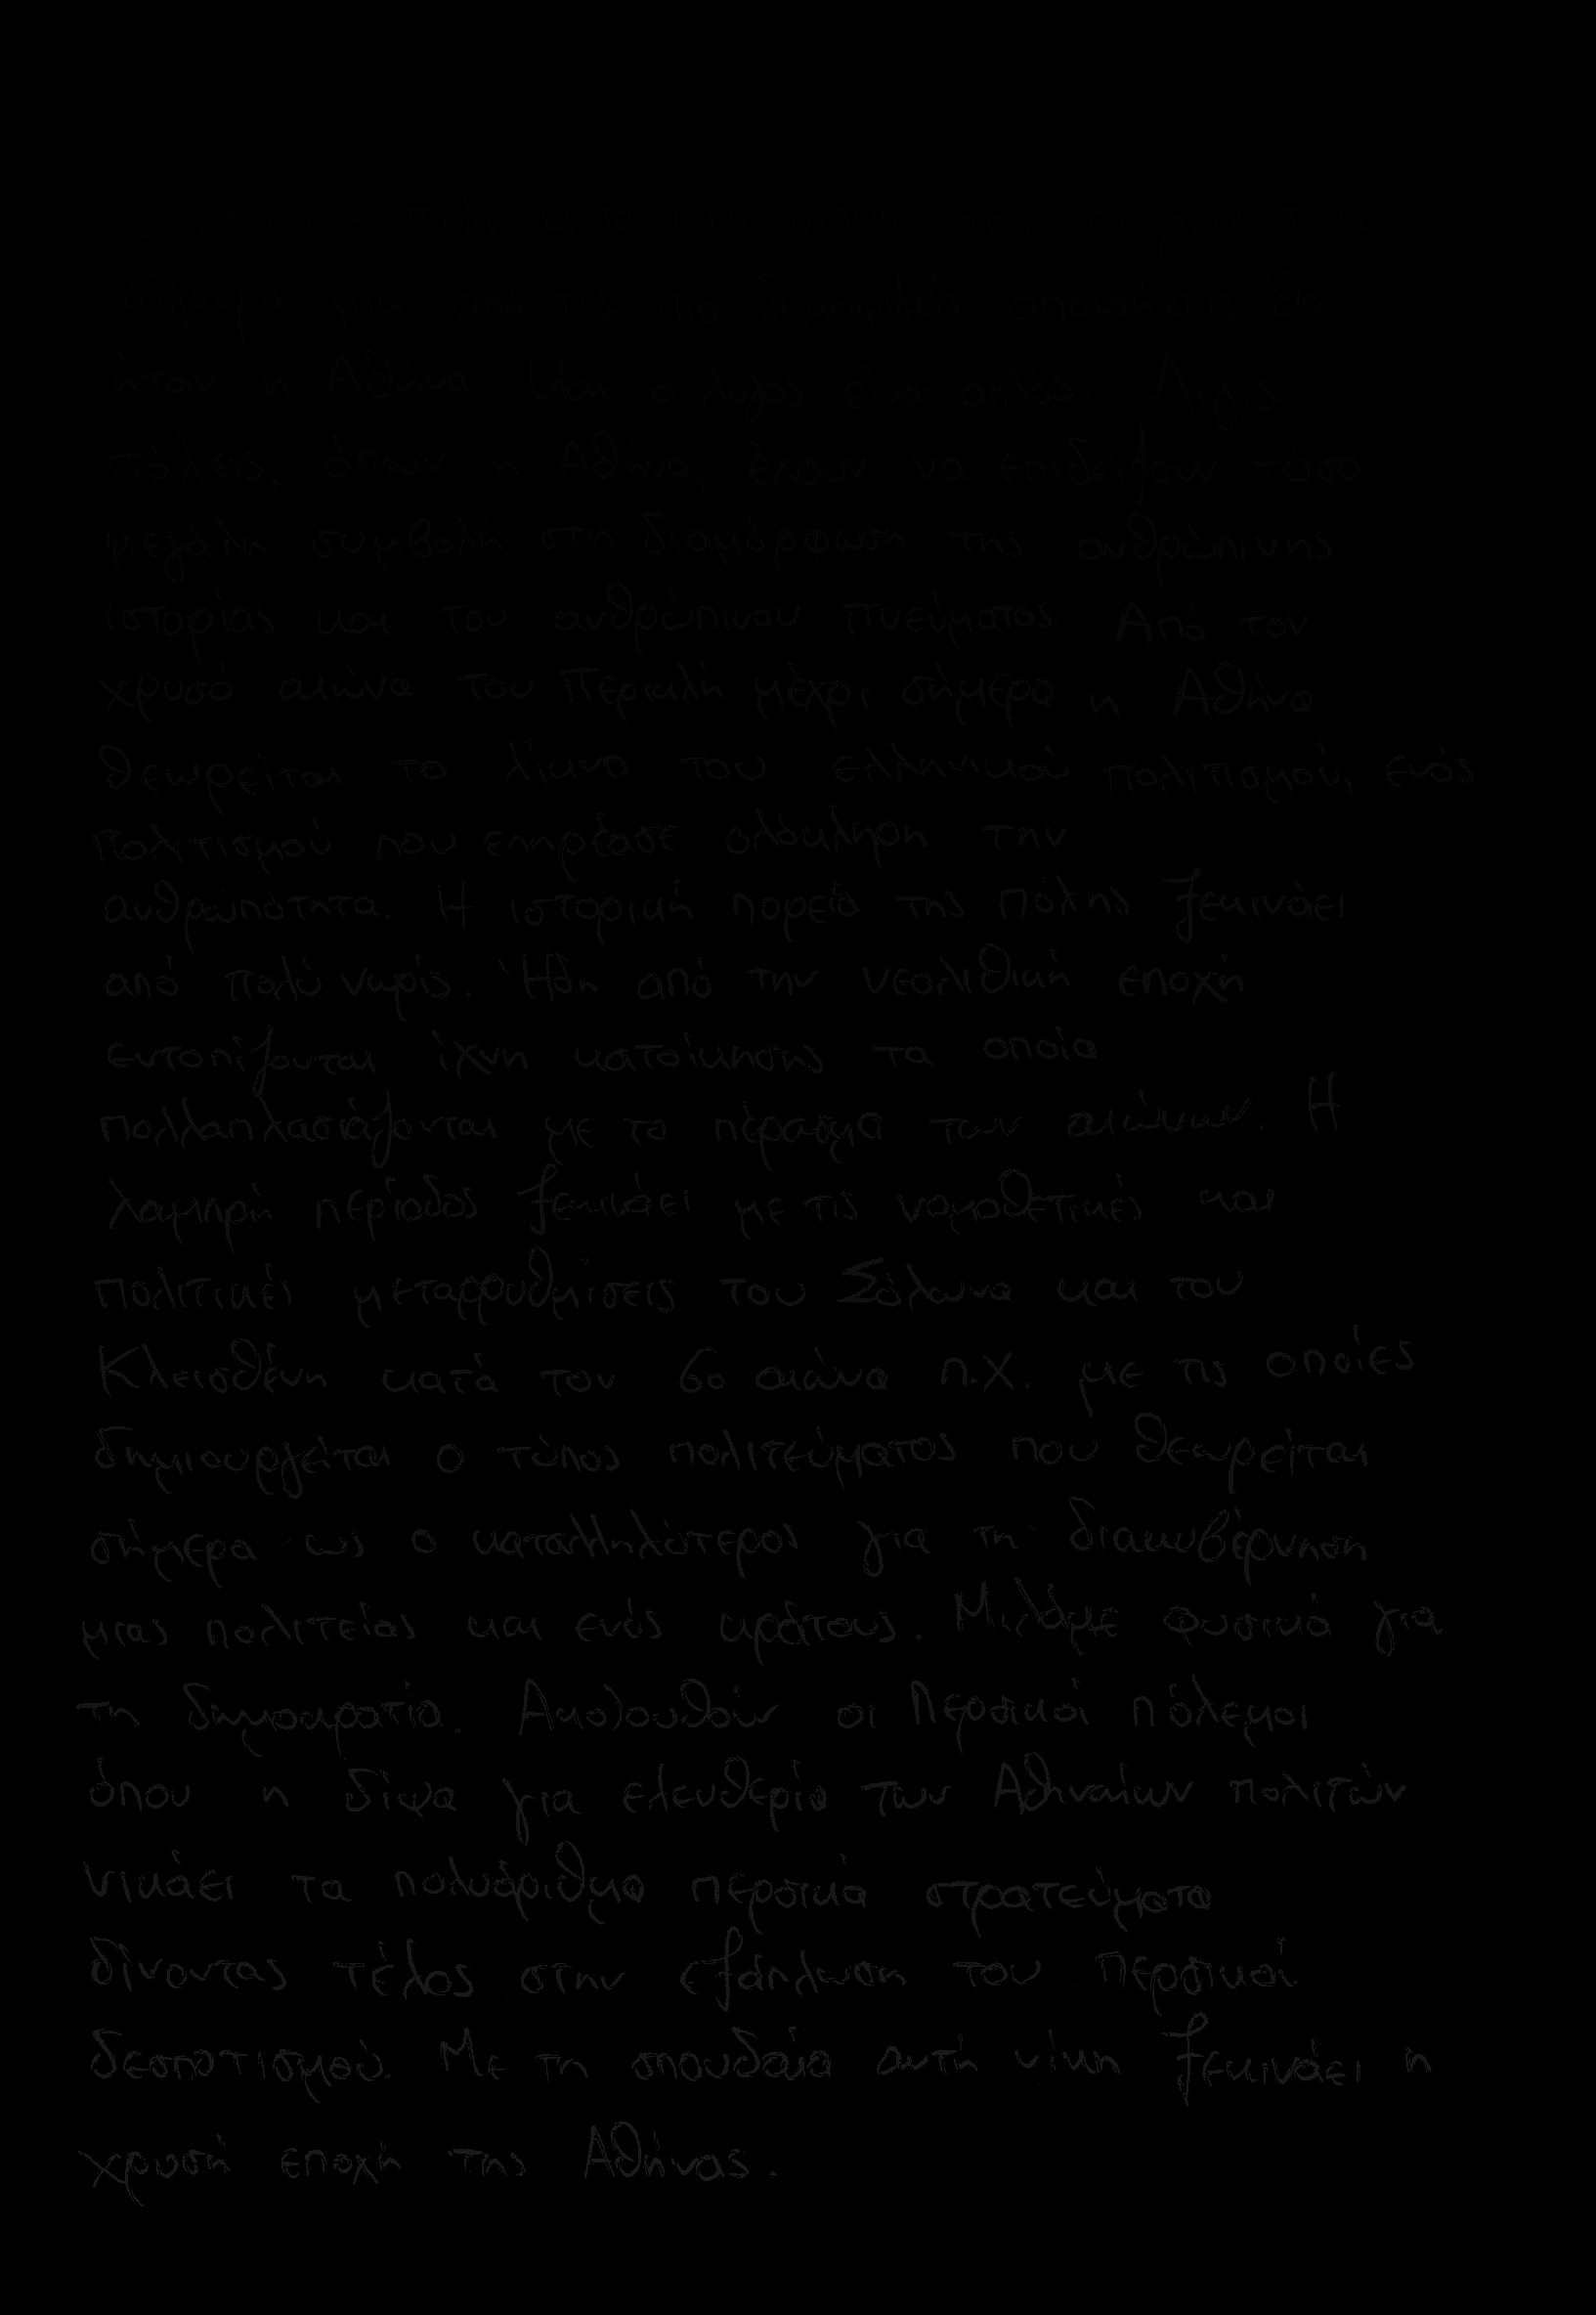 σημαντική πόλη μέσα στο διάβα της ιστορίας τότε
σίγουρα μία από τις πιο δημοφιλείς απαντήσεις θα
ήταν η Αθήνα. Και ο λόγος είναι απλός. Λίγες
πόλεις, όπων η Αθήνα, έχουν να επιδείξουν τόσο
μεγάλη συμβολή στη διαμόρφωση της ανθρώπινης
ιστορίας και του ανθρώπινου πνεύματος. Από τον
χρυσό αιώνα του Περικλή μέχρι σήμερα η Αθήνα
θεωρείται το λίκνο του ελληνικού πολιτισμού, ενός
πολιτισμού που επηρέασε ολόκληρη την
ανθρωπότητα. Η ιστορική πορεία της πόλης ξεκινάει
από πολύ νωρίς. Ήδη από την νεολιθική εποχή
εντοπίζονται ίχνη κατοίκησης τα οποία
πολλαπλασιάζονται με το πέρασμα των αιώνων. Η
λαμπρή περίοδος ξεκινάει με τις νομοθετικές και
πολιτικές μεταρρυθμίσεις του Σόλωνα και του
Κλεισθένη κατά τον 6ο αιώνα π.Χ. με τις οποίες
δημιουργείται ο τύπος πολιτεύματος που θεωρείται
σήμερα ως ο καταλληλότερος για τη διακυβέρνηση
μιας πολιτείας και ενός κράτους. Μιλάμε φυσικά για
τη δημοκρατία. Ακολουθούν οι Περσικοί πόλεμοι
όπου η δίψα για ελευθερία των Αθηναίων πολιτών
νικάει τα πολυάριθμα περσικά στρατεύματα
δίνοντας τέλος στην εξάπλωση του περσικού
δεσποτισμού. Με τη σπουδαία αυτή νίκη ξεκινάει η
χρυσή εποχή της Αθήνας.